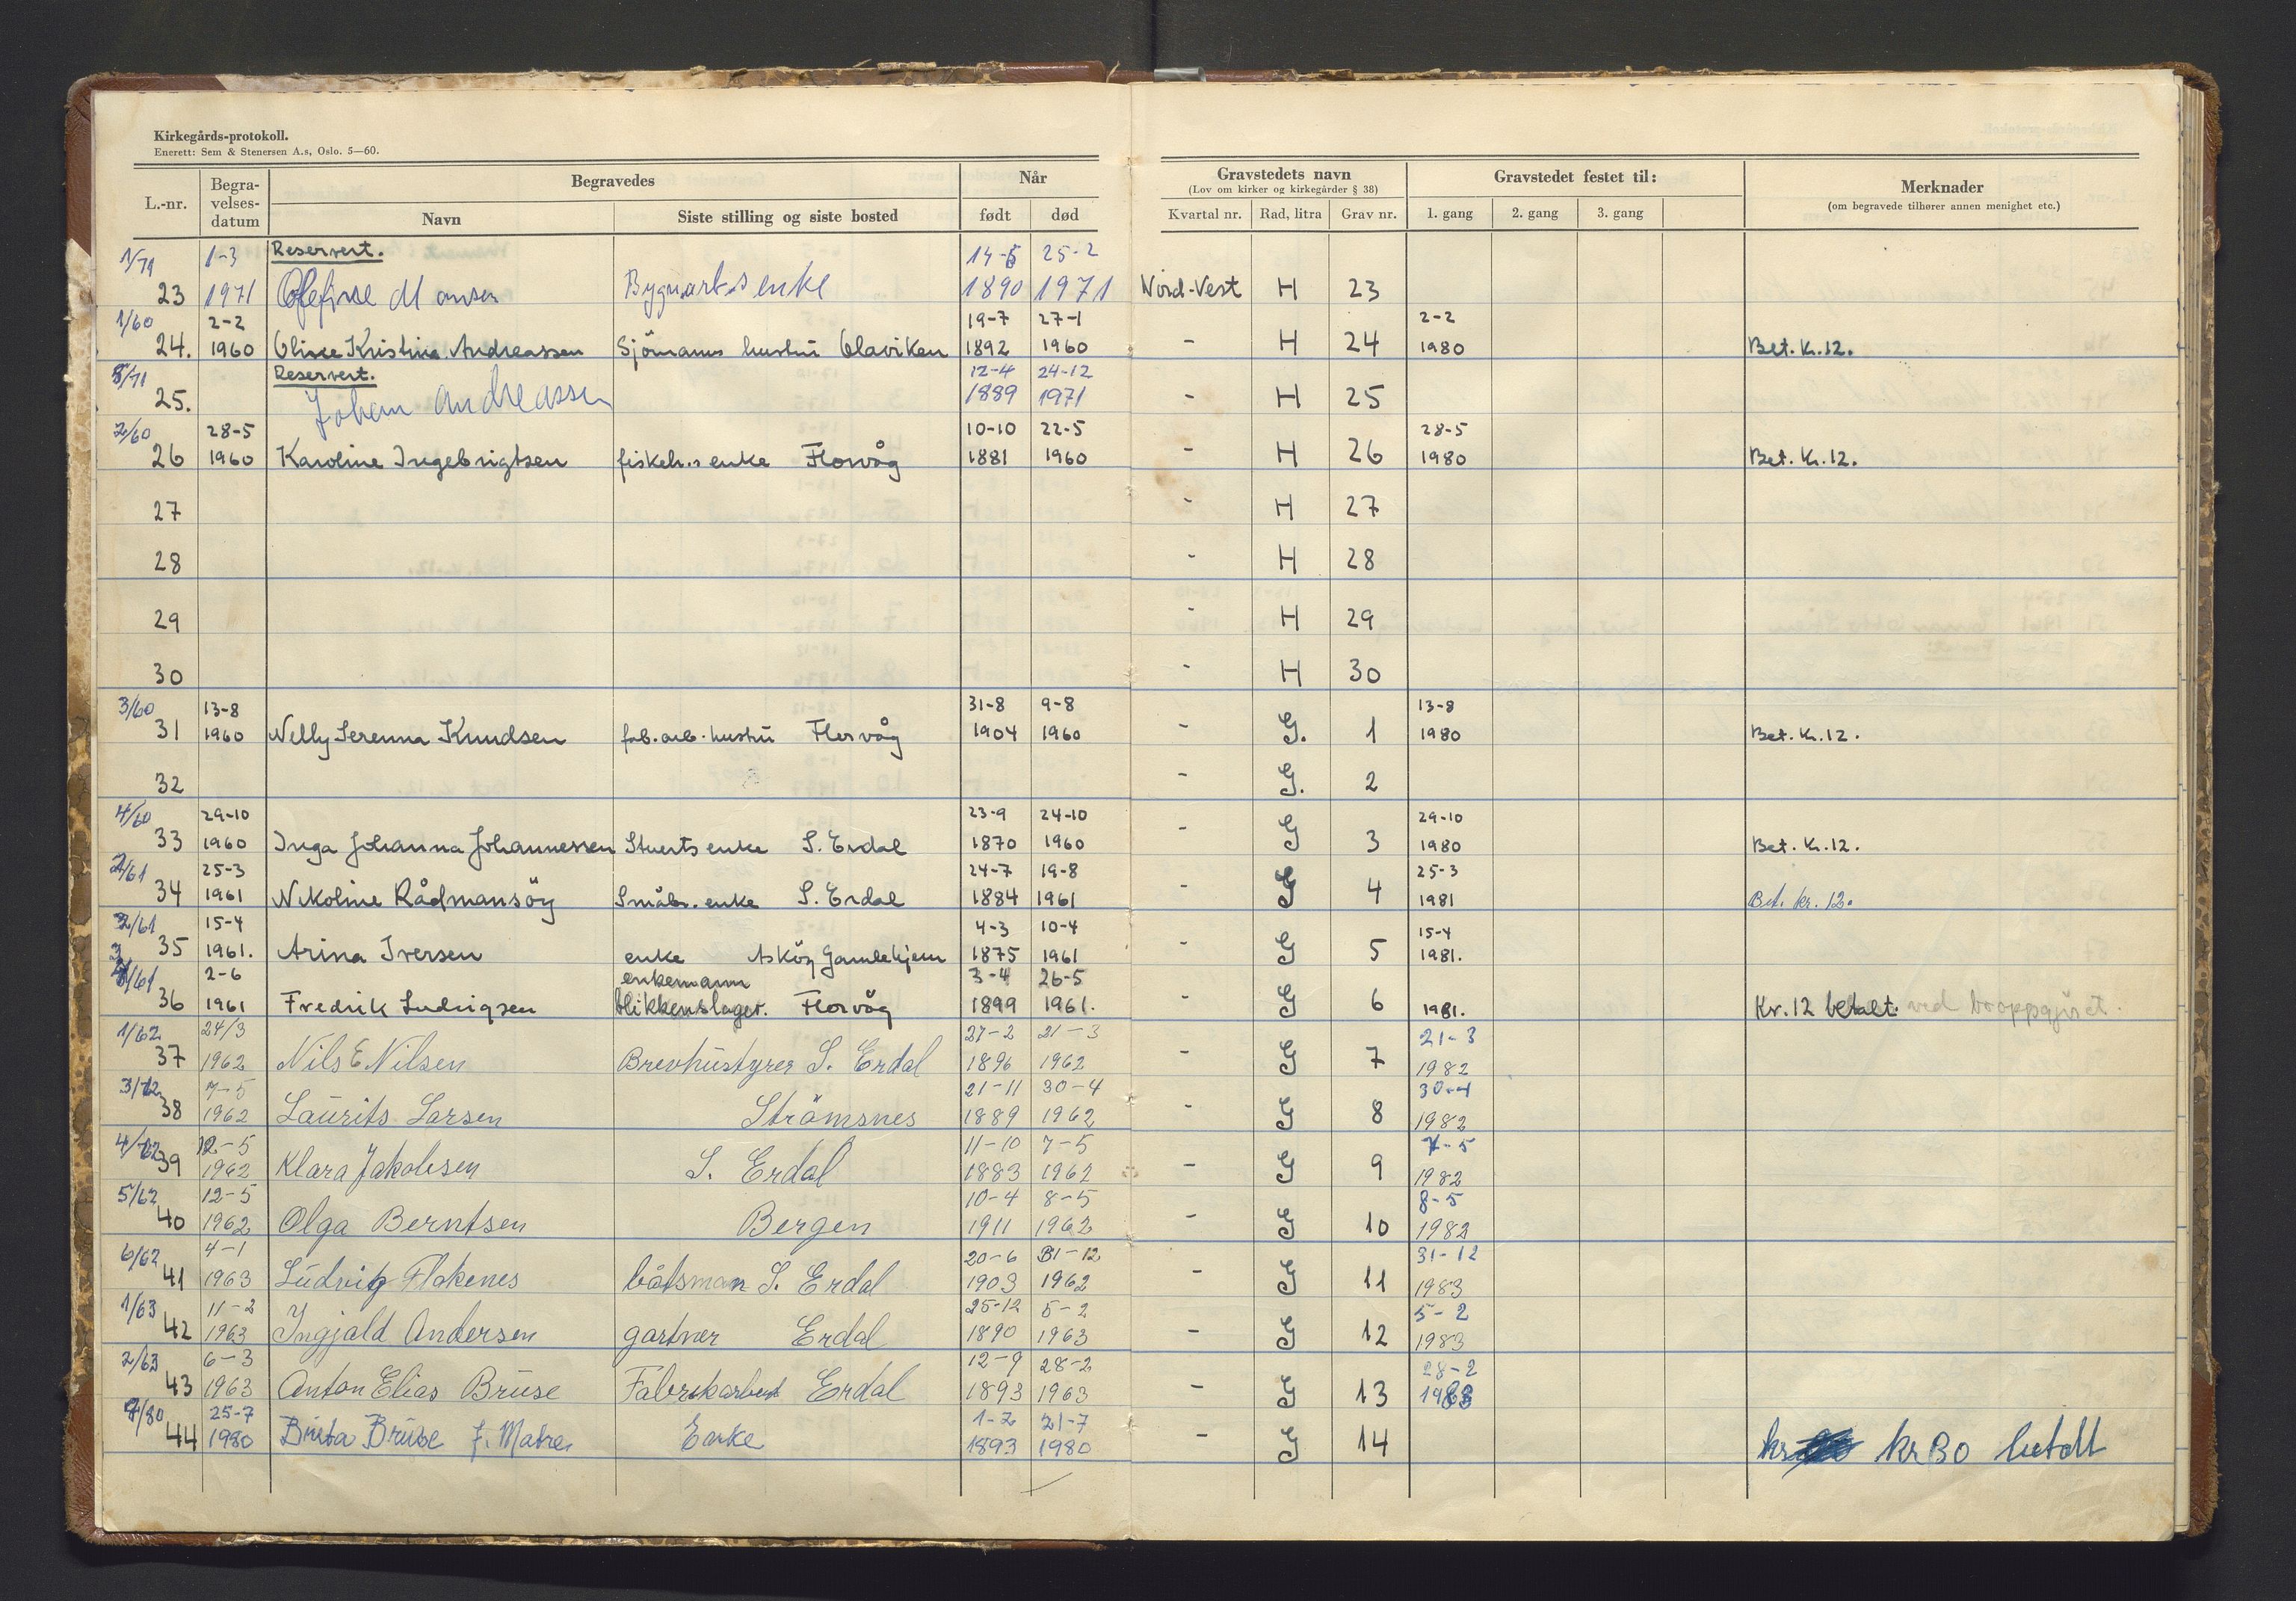 Kirkegårds-protokoll.
Enerett: Sem & Stenersen A.s, Oslo. 5—60.
L.-nr. Begra-velses-datum Begravedes Når
Navn Siste stilling og siste bosted født død
Gravstedets navn Gravstedet festet til: Merknader
(Lov om kirker og kirkegårder § 38) (om begravede tilhører annen menighet etc.)
Kvartal nr. Rad, litra Grav nr. 1. gang 2. gang 3. gang
1/71 1-3 Reservert. 14-5 25-2
23 1971 enke 1890 1971 Nord-Vest H 23
1/60 2-2 19-7 27-1 2-2
24. 1960 Kristina Andreassen Sjömanns hustru Olaviken 1892 1960 - H 24 1980 Bet. K. 12.
/71 Reservert. 12-4 24-12
25. Johan Andreassen 1889 1971 - H 25
2/60 28-5 10-10 22-5 28-5
26 1960 Karoline Ingebrigtsen fiskeh.s enke Florvåg 1881 1960 - H 26 1980 Bet. K. 12.
27 - H 27
28 - H 28
29 - H 29
30 - H 30
3/60 13-8 31-8 9-8 13-8
31 1960 Nelly Serenna Knudsen fab.arb. hustru Florvåg 1904 1960 - G. 1 1980 Bet. K. 12.
32 - G. 2
4/60 29-10 23-9 24-10 29-10
33 1960 Inga Johanna Johannessen Stuerts enke S. Erdal 1870 1960 - G 3 1980 Bet. K. 12.
/61 25-3 24-7 19-8 25-3
34 1961 Nikoline Rådmansöy Småbr. enke S. Erdal 1884 1961 - G 4 1981 Bet. kr. 12.
2/61 15-4 4-3 10-4 15-4
35 1961. Arina Iversen enke Asköy Gamlehjem 1875 1961 - G 5 1981.
3/61 2-6 enkemann 3-4 26-5
36 1961 Fredrik Ludvigsen blikkenslager. Florvåg 1899 1961. - G 6 1981. Kr. 12 betalt. ved
1/62 24/3 27-2 21-3 21-3
37 1962 Nils E Nilsen Brevhustyrer S. Erdal 1896 1962 - G 7 1982
3/62 7-5 21-11 30-4 30-4
38 1962 Laurits Larsen Strömsnes 1889 1962 - G 8 1982
4/62 12-5 11-10 7-5 7-5
39 1962 Klara Jakobsen S. Erdal 1883 1962 - G 9 1982
5/62 12-5 10-4 8-5 8-5
40 1962 Olga Berntsen Bergen 1911 1962 - G 10 1982
6/62 4-1 20-6 31-12 31-12
41 1963 Ludvig Flakenes båtsman S. Erdal 1903 1962 - G 11 1983
1/63 11-2 25-12 5-2 5-2
42 1963 Ingjald Andersen gartner Erdal 1890 1963 - G 12 1983
2/63 6-3 12-9 28-2 28-2
43 1963 Anton Elias Bruse Fabrikarbeid Erdal 1893 1963 - G 13 1983
/80 25-7 1-2 21-7
44 1980 Brita Bruse f. Matre Enke 1893 1980 - G 14 kr kr 30 betalt